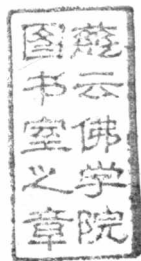 云佛学院
图书室之章